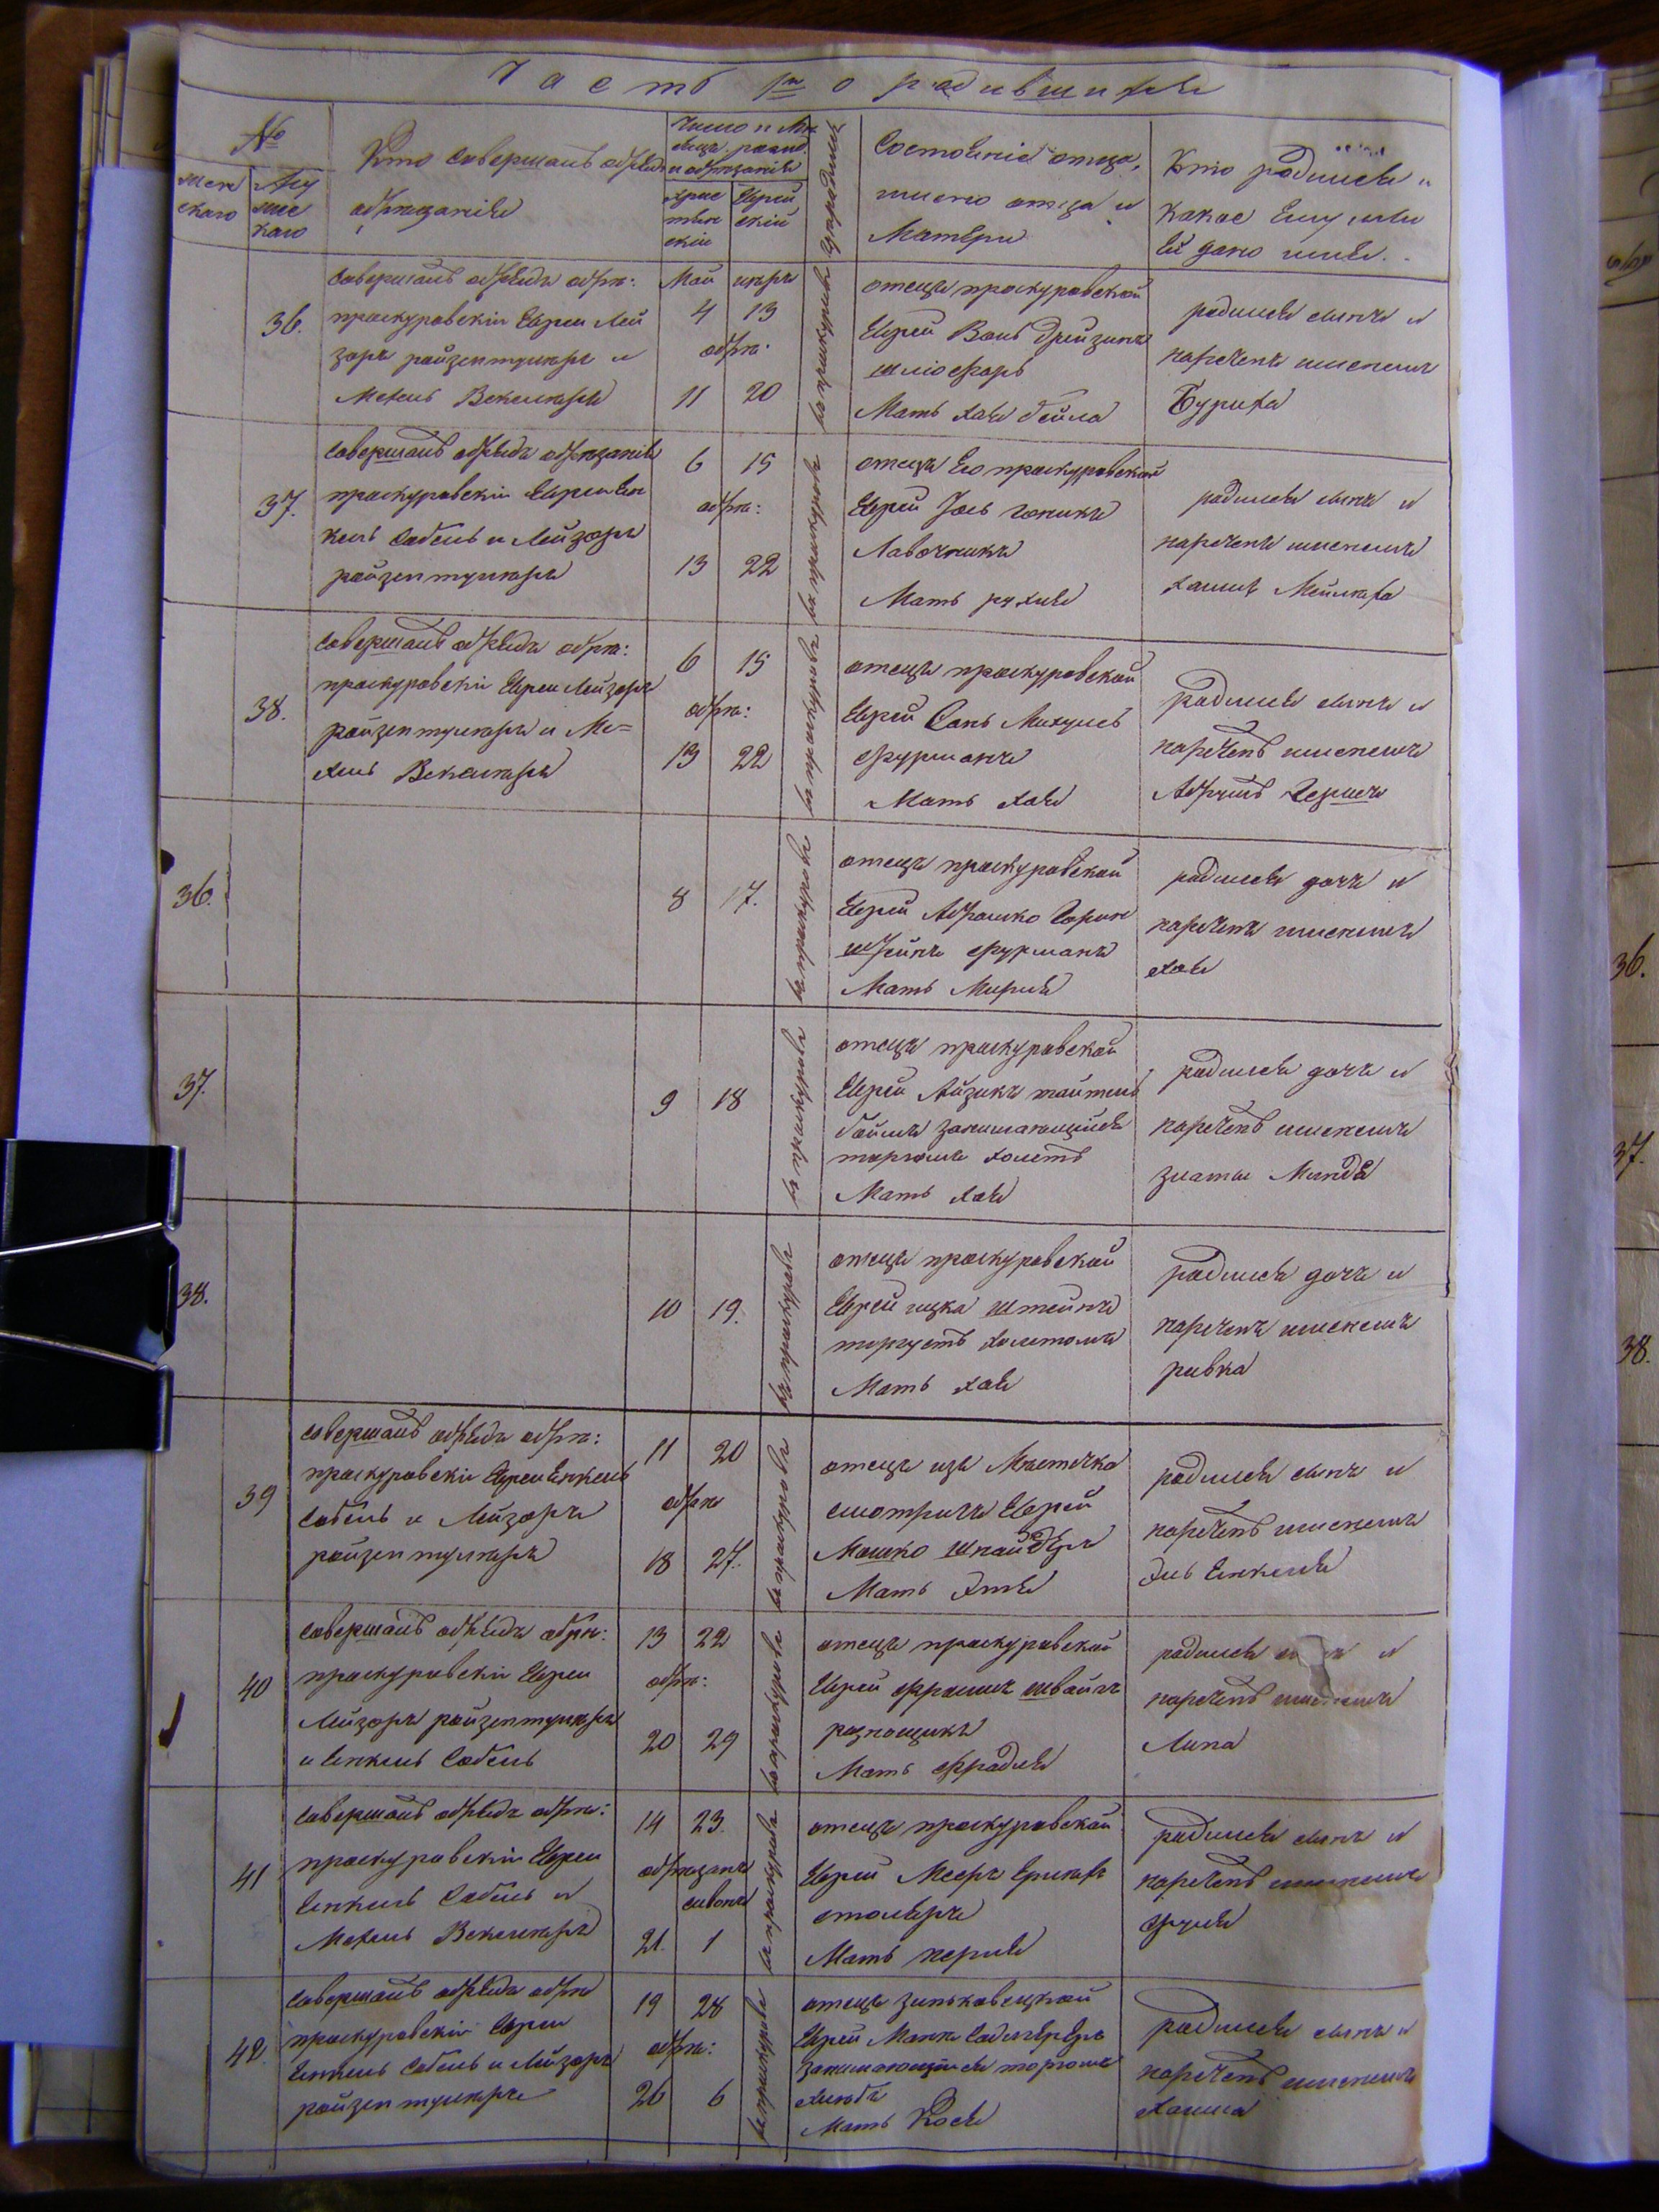 Часть 1я о родившихся
№
женскаго
Мужескаго
Кто совершалъ обрядъ
обрезанія
Число и Месяцъ рожд.
и обрезанія
Христьянскій
Еврейскій
Где родился
Состояніе отца,
имено отца и
Матери
Кто родился и
какое Ему или
Ей дано имя.
36.
совершалъ обрядъ обре:
проскуровскіи Евреи Лей
зоръ ройзентулларъ и
Мехель
Май
4
13
обре:
11
20
въ проскурове
отецъ проскуровской
Еврей Воль Дрейзинъ
Мать хая бейла
родился сынъ и
нареченъ именемъ
Буриха
37.
совершалъ обрядъ обрезанія
проскуровскіи Евреи Ен
кель Собель и Лейзоръ
ройзентулларъ
6
15
обре:
13
22
въ проскурове
отецъ Его проскуровской
Еврей Іось гоникъ
Лавочникъ
Мать рухля
родился сынъ и
нареченъ именемъ
38.
совершалъ обрядъ обре:
проскуровскіи Евреи Лейзоръ
ройзентулларъ и Ме=
хель
6
15
обре:
13
22
въ проскурове
отецъ проскуровской
Еврей
фурманъ
Мать хая
родился сынъ и
нареченъ именемъ
Абрумъ Гершъ
36.
8
17.
въ проскурове
отецъ проскуровской
Еврей Абрамко Горин
штейнъ фурманъ
Мать Мирля
родилися дочъ и
нареченъ именемъ
хая
37.
9
18
въ проскурове
отецъ проскуровской
Еврей Айзикъ тайтель
боймъ занимающійся
торгомъ холстъ
Мать хая
родилися дочъ и
нареченъ именемъ
златы Миндя
38.
10
19.
въ проскурове
отецъ проскуровской
Еврей ицка штейнъ
торгуетъ холстомъ
Мать хая
родилися дочъ и
нареченъ именемъ
ривка
39
совершалъ обрядъ обре:
проскуровскіи Евреи Енкель
Собель и Лейзоръ
ройзентулларъ
11
20
обре
18
27.
въ проскурове
отецъ изъ Мястечка
смотрича Еврей
Мошко шнайдеръ
Мать Этя
родился сынъ и
нареченъ именемъ
Эль Енкеля
40
совершалъ обрядъ обре:
проскуровскіи Евреи
Лейзоръ ройзентулларъ
и Енкель Собель
13
22
обре:
20
29
въ проскурове
отецъ проскуровской
Еврей фроимъ швайгъ
разнощикъ
Мать фрадля
родился и
нареченъ именемъ
Липа
41
совершалъ обрядъ обре:
проскуровскіи Евреи
Енкель Собель и
Мехель
14
23.
обрезанъ
сивонъ
21.
1
въ проскурове
отецъ проскуровской
Еврей Мееръ
столяръ
Мать перля
родился сынъ и
нареченъ именемъ
фуля
42.
совершалъ обрядъ обре
проскуровскіи Евреи
Енкель Собель и Лейзоръ
ройзентулларъ
19
28
обре:
26
6
въ проскурове
отецъ зиньковецкой
Еврей
занимающійся торгомъ
хлеба
Мать Рося
родился сынъ и
нареченъ именемъ
хаима
36.
37.
38.